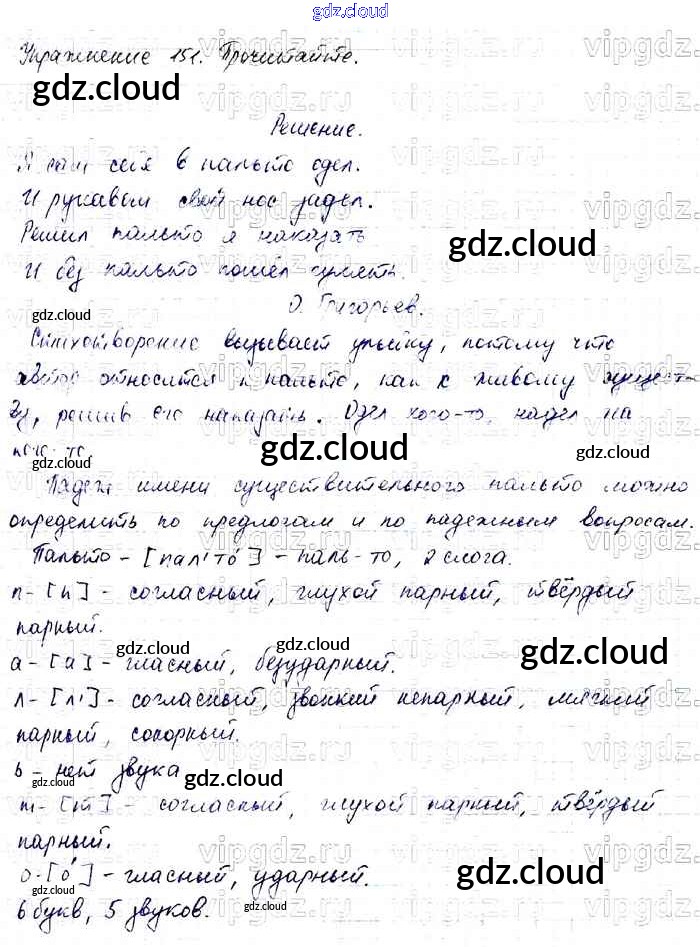 gdz.cloud
Упражнение 151. Прочитайте.
gdz.cloud
Решение.
Я сам себя в пальто одел.
И рукавом свой нос задел.
Решил пальто я наказать
gdz.cloud
И без пальто пошёл гулять.
О. Григорьев.
gdz.cloud
Стихотворение вызывает улыбку, потому что
автор относится к пальто, как к живому сущест-
ву, решив его наказать. Одел кого-то, надел на
gdz.cloud
кого-то.
gdz.cloud
Падеж имени существительного пальто можно
определить по предлогам и по падежным вопросам.
Пальто - [пал'то́] - паль-то, 2 слога.
п - [п] - согласный, глухой парный, твёрдый
парный.
gdz.cloud
gdz.cloud
gdz.cloud
а - [а] - гласный, безударный.
л - [л'] - согласный, звонкий непарный, мягкий
парный, сонорный.
ь - нет звука
gdz.cloud
т - [т] - согласный, глухой парный, твёрдый
парный.
gdz.cloud
о - [о́] - гласный, ударный.
gdz.cloud
6 букв, 5 звуков.
gdz.cloud